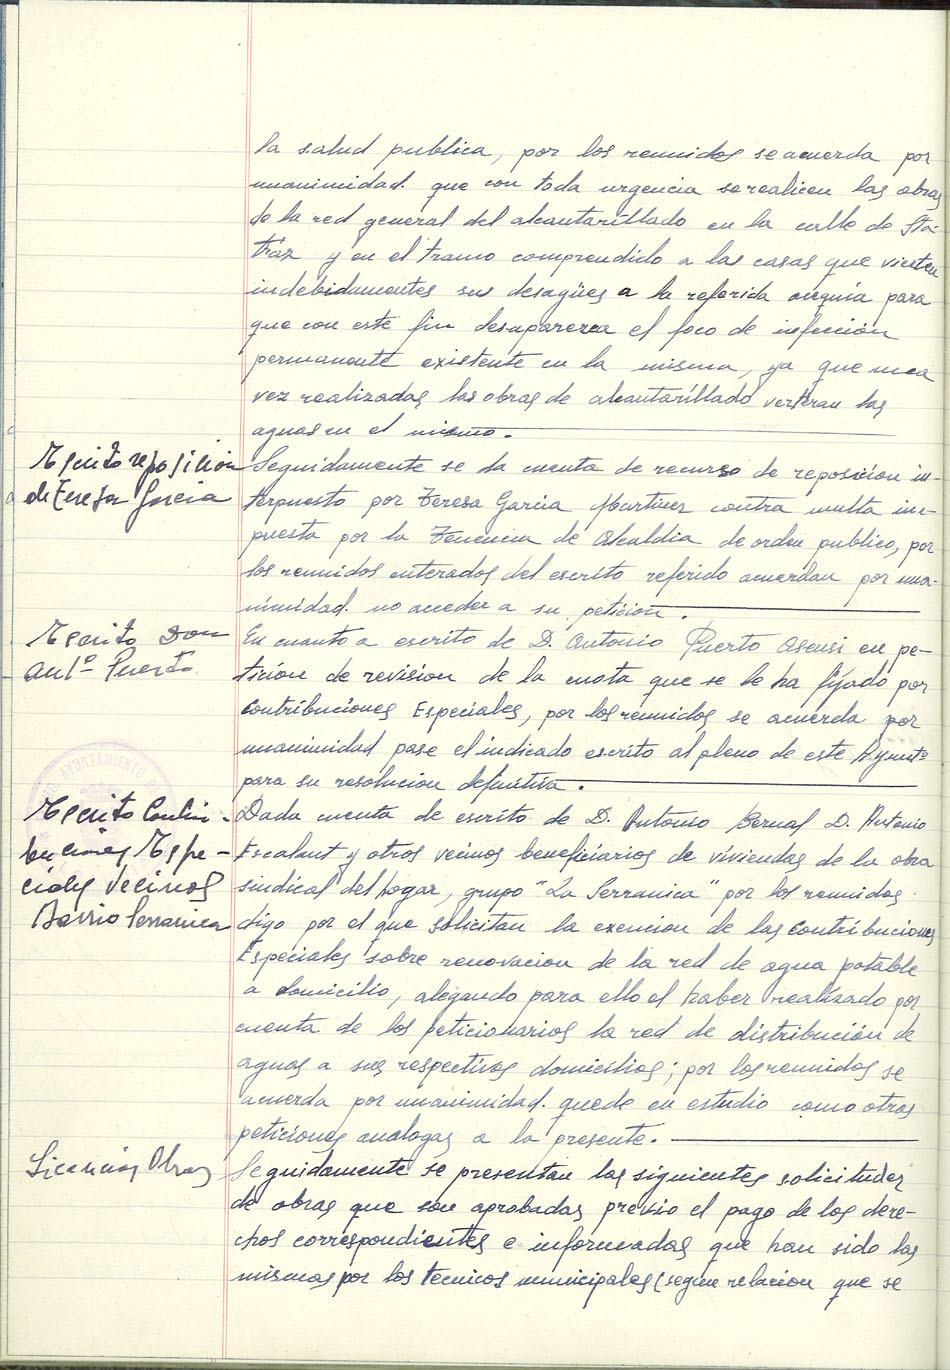 la salud publica, por los reunidos se acuerda por
unanimidad. que con toda urgencia se realicen las obras
de la red general del alcantarillado en la calle de
y en el tramo comprendido a las casas que vierten
indebidamentes sus desagües a la referida acequia para
que con este fin desaparezca el foco de infección
permanente existente en la misma, ya que una
vez realizadas las obras de alcantarillado verteran las
aguas en el mismo.
Escrito reposición
de Teresa Garcia
Seguidamente se da cuenta de recurso de reposicion in-
terpuesto por Teresa Garcia Martinez contra multa im-
puesta por la Tenencia de Alcaldia de orden publico, por
los reunidos enterados del escrito referido acuerdan por una-
nimidad. no acceder a su peticion.
Escrito Don
Antº Puerto
En cuanto a escrito de D. Antonio Puerto Asensi en pe-
tición de revision de la cuota que se le ha fijado por
Contribuciones Especiales, por los reunidos se acuerda por
unanimidad pase el indicado escrito al pleno de este Ayuntº
para su resolucion definitiva.
AYUNTAMIENTO
Escrito Contri-
buciones Espe-
ciales vecinos
Barrio Serranica
Dada cuenta de escrito de D. Antonio Bernal D. Antonio
Escalant y otros vecinos beneficiarios de viviendas de la obra
sindical del hogar, grupo "La Serranica" por los reunidos.
digo por el que solicitan la exencion de las Contribuciones
Especiales sobre renovacion de la red de agua potable
a domicilio, alegando para ello el haber realizado por
cuenta de los peticionarios la red de distribución de
aguas a sus respectivos domicilios; por los reunidos se
acuerda por unanimidad. quede en estudio como otras
peticiones analogas a la presente.
Licencias Obras
Seguidamente se presentan las siguientes solicitudes
de obras que son aprobadas previo el pago de los dere-
chos correspondientes e informadas que han sido las
mismas por los tecnicos municipales (segun relacion que se